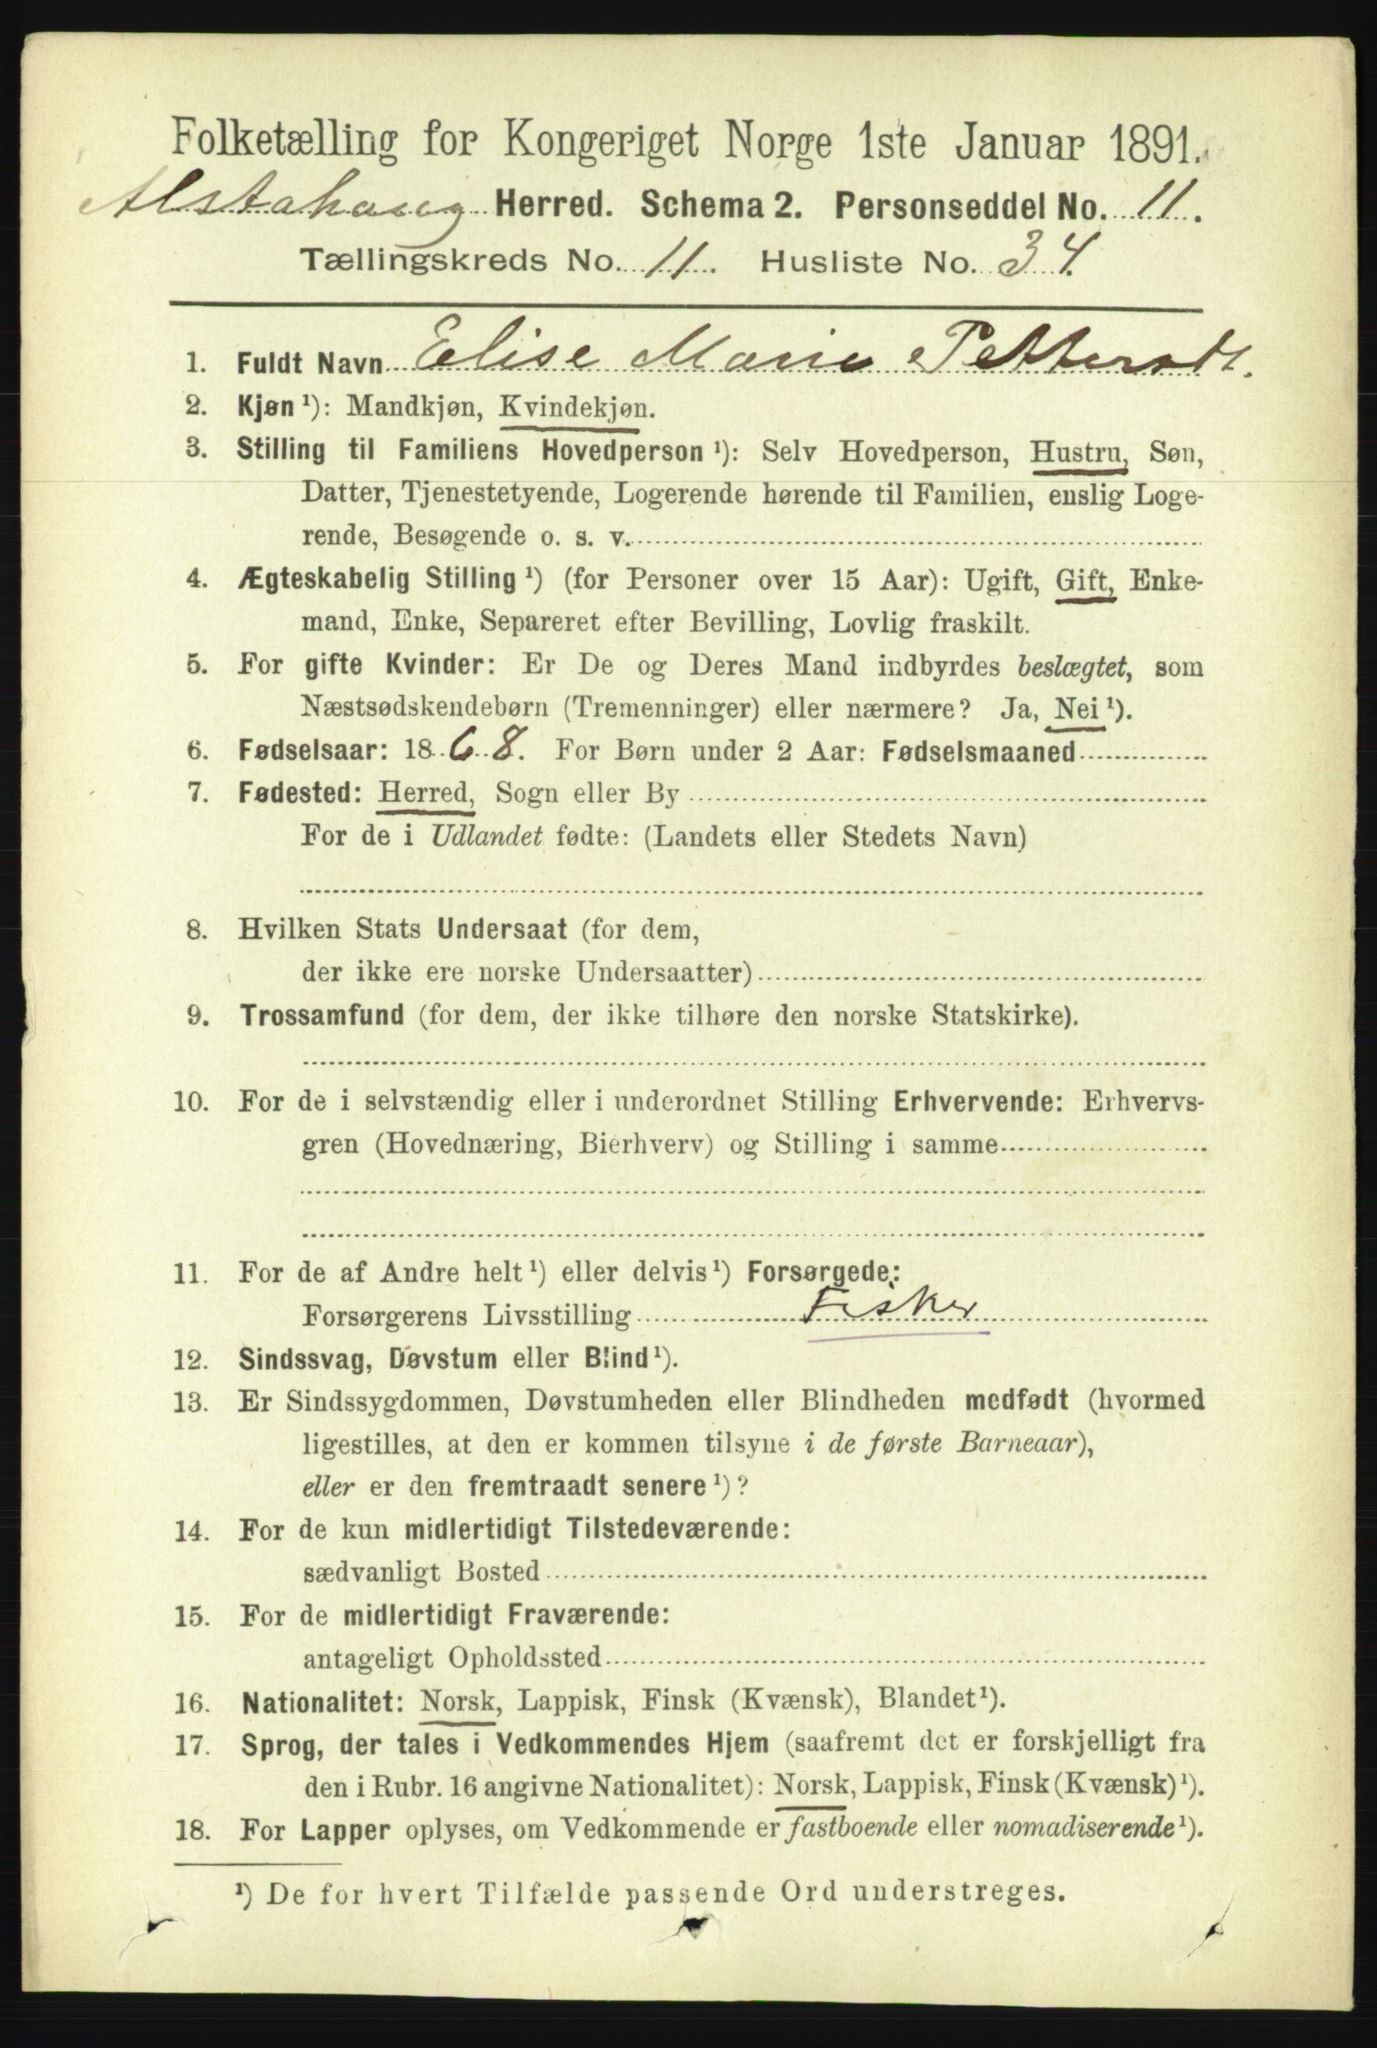 Folketælling for Kongeriget Norge 1ste Januar 1891.
Alstahaug Herred. Schema 2. Personseddel No. 11.
Tællingskreds No. 11. Husliste No. 34.
1. Fuldt Navn Elise Marie Pettersdt.
2. Kjøn ¹): Mandkjøn, Kvindekjøn.
3. Stilling til Familiens Hovedperson ¹): Selv Hovedperson, Hustru, Søn,
Datter, Tjenestetyende, Logerende hørende til Familien, enslig Loge-
rende, Besøgende o. s. v.
4. Ægteskabelig Stilling ¹) (for Personer over 15 Aar): Ugift, Gift, Enke-
mand, Enke, Separeret efter Bevilling, Lovlig fraskilt.
5. For gifte Kvinder: Er De og Deres Mand indbyrdes beslægtet, som
Næstsødskendebørn (Tremenninger) eller nærmere? Ja, Nei ¹).
6. Fødselsaar: 1868. For Børn under 2 Aar: Fødselsmaaned
7. Fødested: Herred, Sogn eller By
For de i Udlandet fødte: (Landets eller Stedets Navn)
8. Hvilken Stats Undersaat (for dem,
der ikke ere norske Undersaatter)
9. Trossamfund (for dem, der ikke tilhøre den norske Statskirke).
10. For de i selvstændig eller i underordnet Stilling Erhvervende: Erhvervs-
gren (Hovednæring, Bierhverv) og Stilling i samme
11. For de af Andre helt ¹) eller delvis ¹) Forsørgede:
Forsørgerens Livsstilling Fisker
12. Sindssvag, Døvstum eller Blind ¹).
13. Er Sindssygdommen, Døvstumheden eller Blindheden medfødt (hvormed
ligestilles, at den er kommen tilsyne i de første Barneaar),
eller er den fremtraadt senere ¹)?
14. For de kun midlertidigt Tilstedeværende:
sædvanligt Bosted
15. For de midlertidigt Fraværende:
antageligt Opholdssted
16. Nationalitet: Norsk, Lappisk, Finsk (Kvænsk), Blandet ¹).
17. Sprog, der tales i Vedkommendes Hjem (saafremt det er forskjelligt fra
den i Rubr. 16 angivne Nationalitet): Norsk, Lappisk, Finsk (Kvænsk) ¹).
18. For Lapper oplyses, om Vedkommende er fastboende eller nomadiserende ¹).
¹) De for hvert Tilfælde passende Ord understreges.